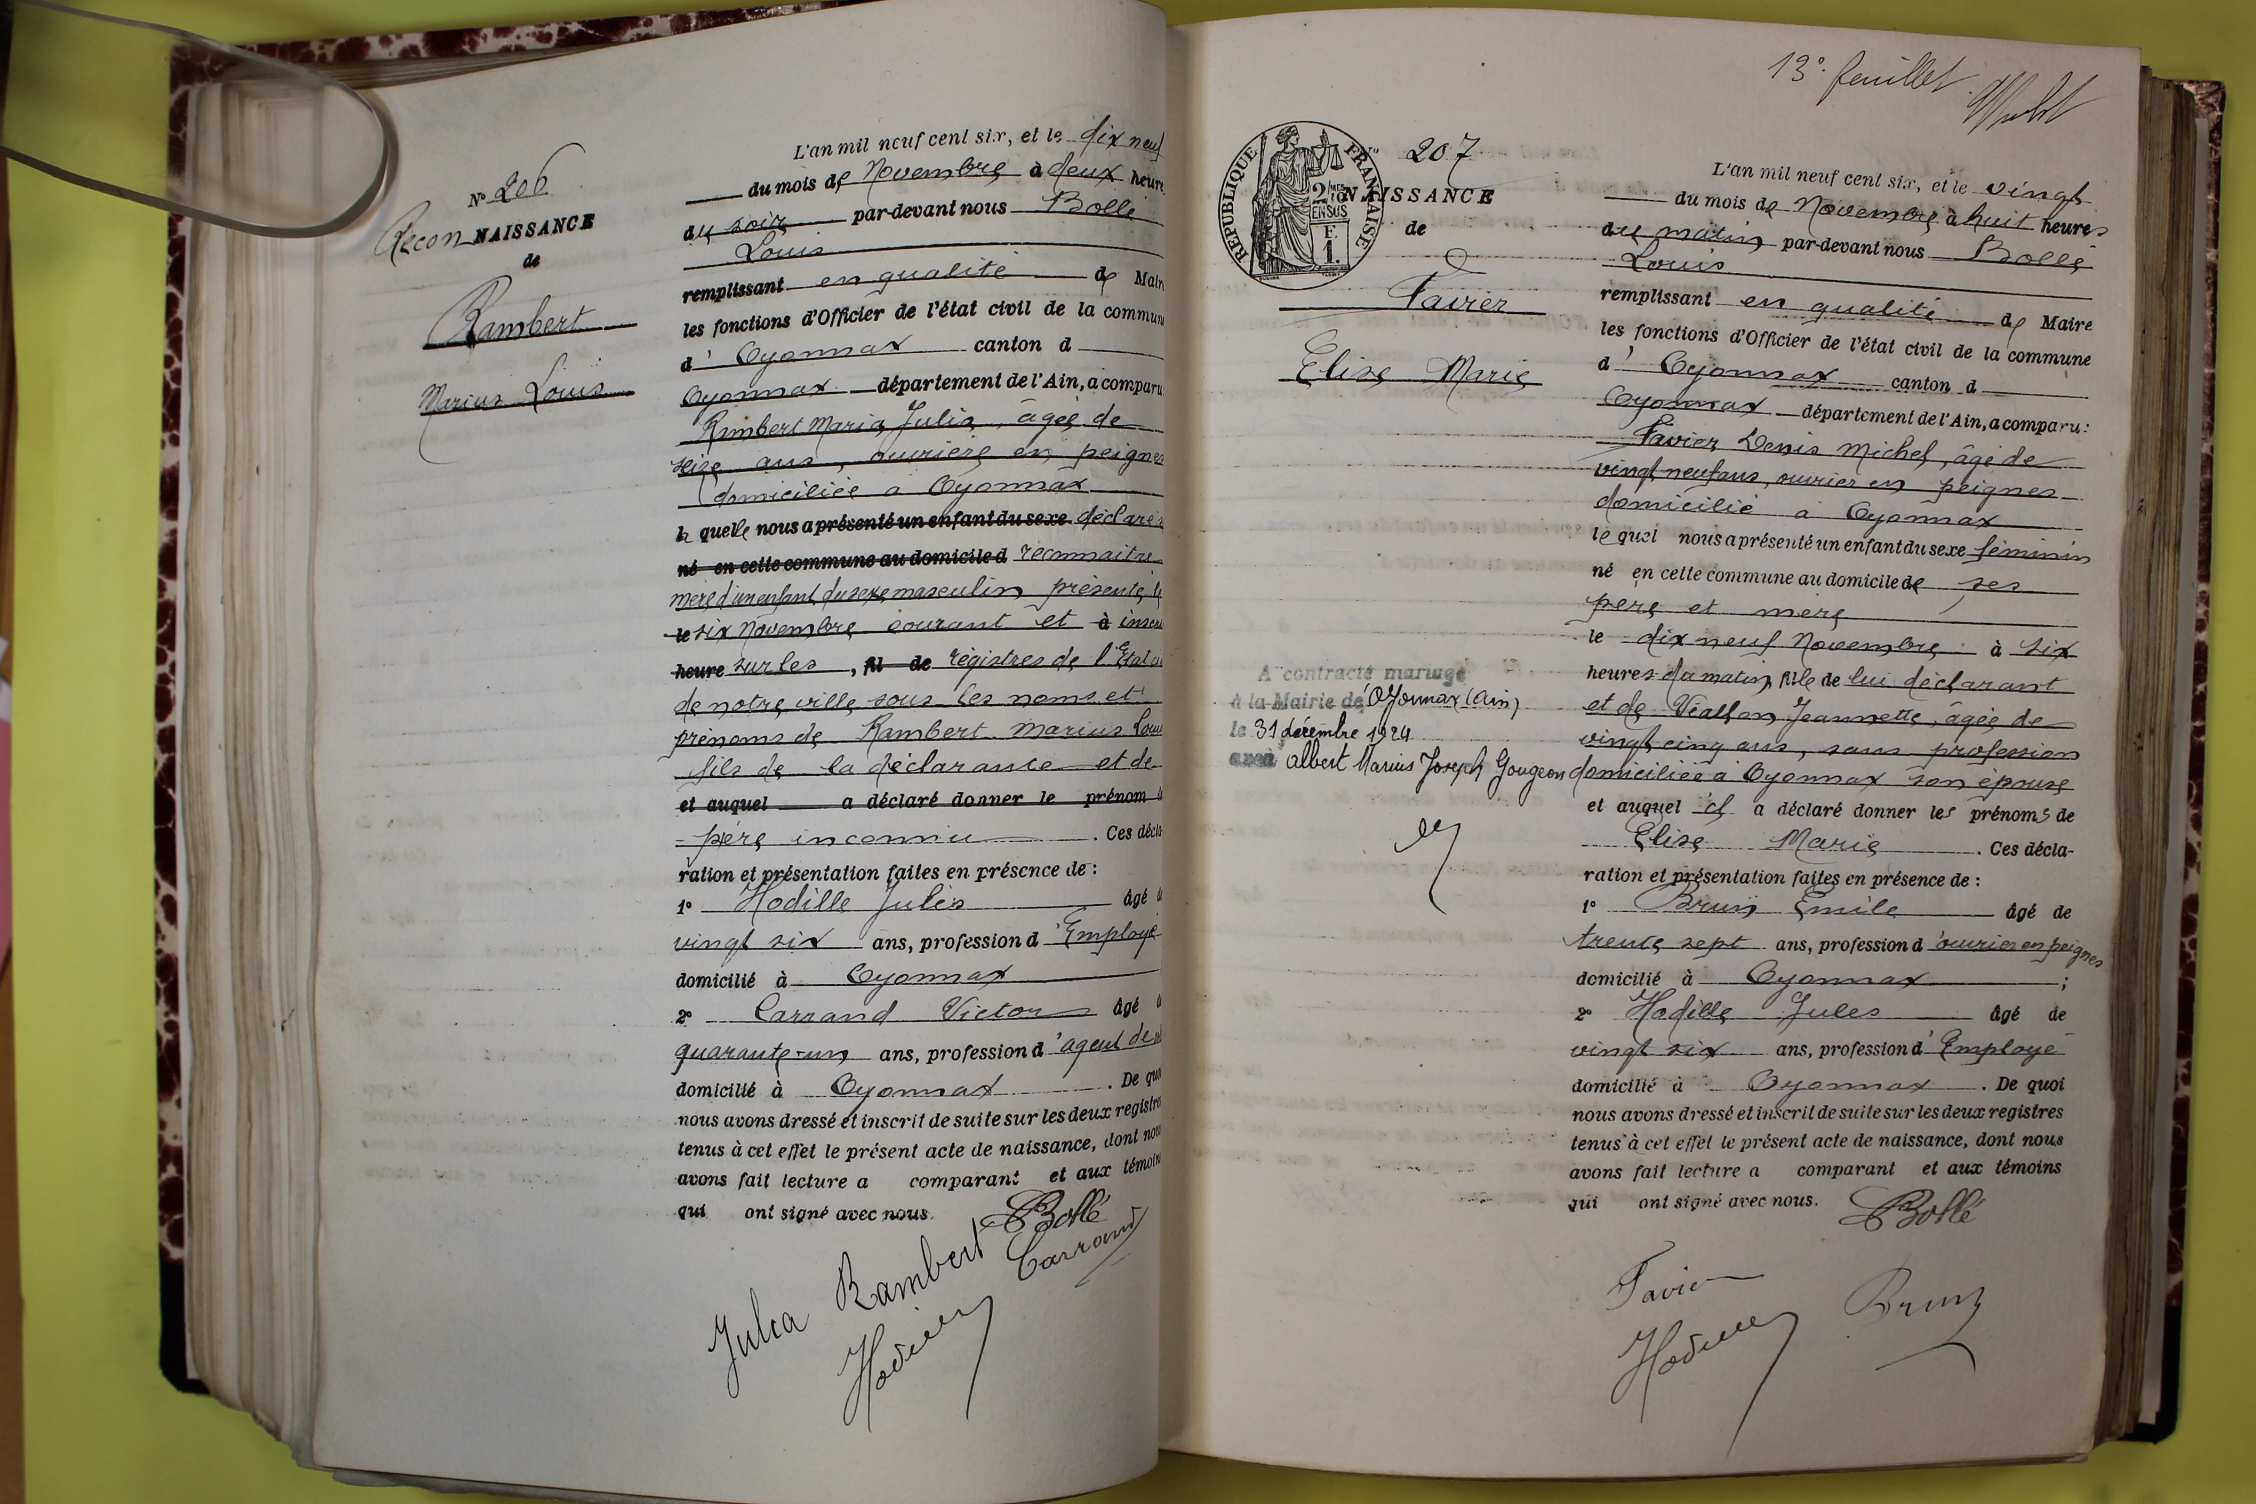 N° 206
ReconNAISSANCE
de
Rambert
Marius Louis
L'an mil neuf cent six, et le dix neuf
du mois de Novembre à deux heure
du soir par-devant nous Bollé
Louis
remplissant en qualité de Mair
les fonctions d'Officier de l'état civil de la commun
d' Oyonnax canton d
Oyonnax département de l'Ain, a comparu
Rambert Maria Julia, âgée de
seize ans, ouvrière en peignes
domiciliée a Oyonnax
la quelle nous a présenté un enfant du sexe déclare
né en cette commune au domicile d reconnaitre
mère d'un enfant du sexe masculin présenté le
le six Novembre courant et à inscri
heure sur les , fil de régistres de l'Etat ci
de notre ville sous les noms et
prénoms de Rambert Marius Louis
fils de la déclarante et de
et auquel a déclaré donner le prénom d
père inconnu . Ces décla
ration et présentation faites en présence de :
1° Hodille Jules âgé d
vingt six ans, profession d'Employé
domicilié à Oyonnax
2° Carrand Victor âgé d
quarante-un ans, profession d'agent de
domicilié à Oyonnax . De quo
nous avons dressé et inscrit de suite sur les deux registre
tenus à cet effet le présent acte de naissance, dont nou
avons fait lecture a comparant et aux témoin
qui ont signé avec nous. Bollé
Julia Rambert Carrand
Hodille
13e feuillet
207
RÉPUBLIQUE FRANÇAISE
2/10 EN SUS
F. 1.
NAISSANCE
de
Favier
Elise Marie
A contracté mariage
à la Mairie de Oyonnax (Ain)
le 31 décembre 1924
avec Albert Marius Joseph Gougeon
L'an mil neuf cent six, et le vingt
du mois de Novembre à huit heures
du matin par-devant nous Bollé
Louis
remplissant en qualité de Maire
les fonctions d'Officier de l'état civil de la commune
d' Oyonnax canton d
Oyonnax département de l'Ain, a comparu :
Favier Denis Michel, âgé de
vingt neuf ans, ouvrier en peignes
domicilié a Oyonnax
le quel nous a présenté un enfant du sexe féminin
né en cette commune au domicile de ses
père et mère
le dix neuf Novembre à six
heures du matin, fille de lui déclarant
et de Viallon Jeannette, âgée de
vingt cinq ans, sans profession
domiciliée à Oyonnax son épouse
et auquel il a déclaré donner les prénoms de
Elise Marie . Ces décla-
ration et présentation faites en présence de :
1° Brun Emile âgé de
trente sept ans, profession d'ouvrier en peignes
domicilié à Oyonnax ;
2° Hodille Jules âgé de
vingt six ans, profession d'Employé
domicilié à Oyonnax . De quoi
nous avons dressé et inscrit de suite sur les deux registres
tenus à cet effet le présent acte de naissance, dont nous
avons fait lecture a comparant et aux témoins
qui ont signé avec nous. Bollé
Favier Brun
Hodille